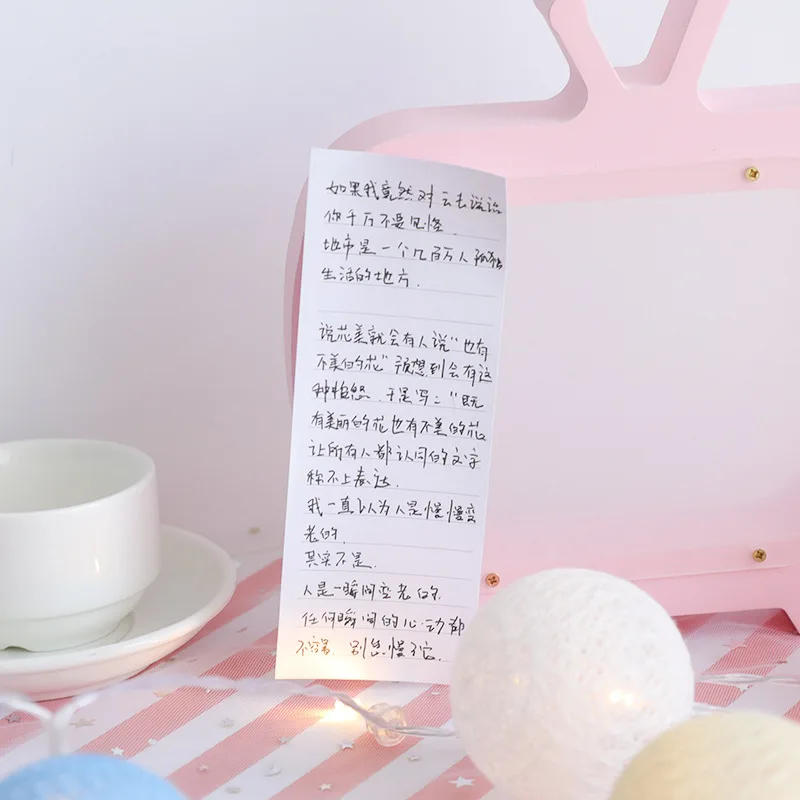 如果我竟然对云去说话
你千万不要见怪.
地市是一个几百万人孤独
生活的地方.
说花美就会有人说"也有
不美的花"预想到会有这
种抱怨.于是写:"既
有美丽的花也有不美的花
让所有人都认同的文字
称不上表达.
我一直以为人是慢慢变
老的.
其实不是.
人是一瞬间变老的.
任何瞬间的心动都
不容易.别怠慢了它.